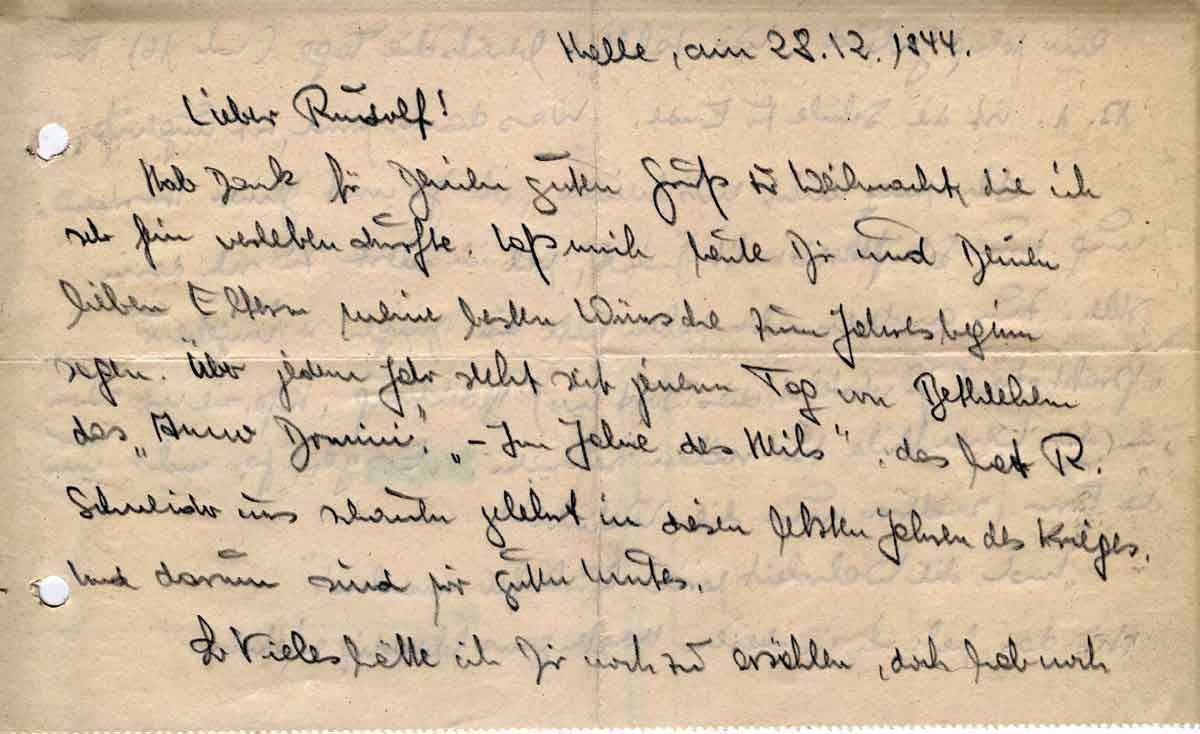 Halle, am 28.12.1944.
Lieber Rudolf!
Hab Dank für Deinen guten Gruß zu Weihnacht, die ich
sehr fein verleben durfte. Laß mich heute Dir und Deinen
lieben Eltern meine besten Wünsche zum Jahresbeginn
sagen. Über jedem Jahr steht seit jenem Tag von Bethlehem
das „Anno Domini", „- Im Jahre des Heils", das hat R.
Schneider uns schauen gelehrt in diesen letzten Jahren des Krieges.
Und darum sind wir guten Mutes.
So Vieles hätte ich Dir noch zu erzählen, doch hab noch